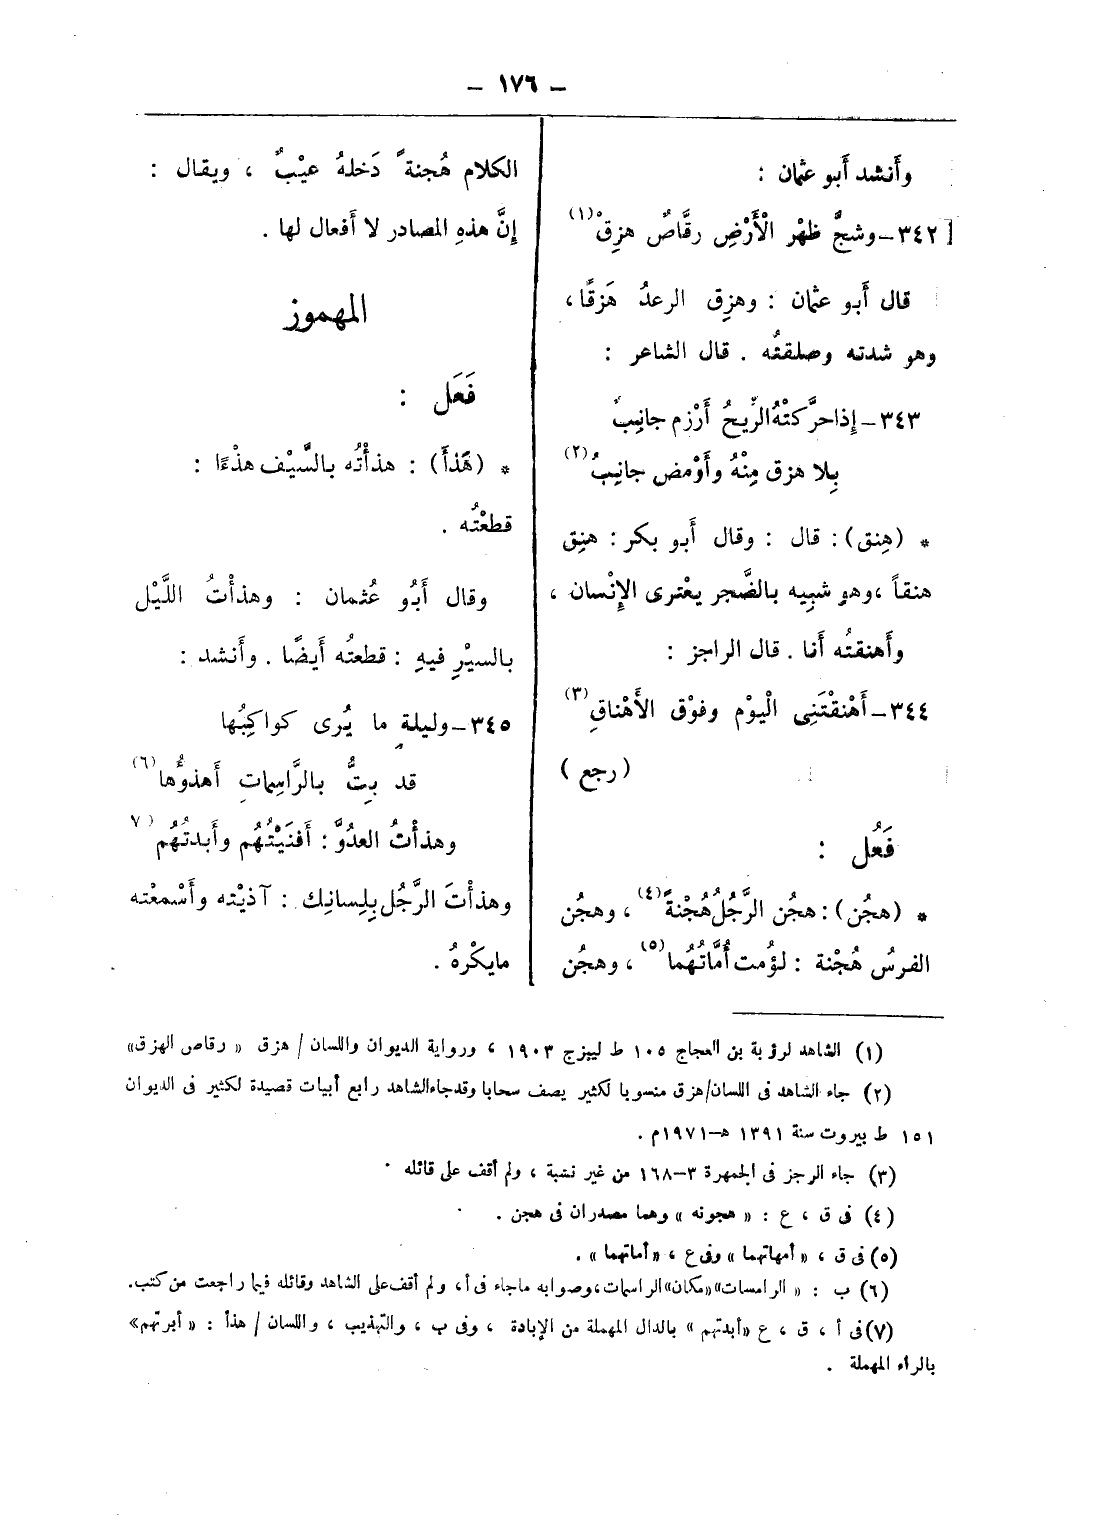 – ١٧٦ –
وأَنشد أَبو عثمان :
٣٤٢ – وشجَّ ظهْر الْأَرْضِ رقَّاصُ هزِقْ (١)
قال أَبو عثمان : وهزِق الرعدُ هَزقًا ،
وهو شدته وصلقتُه . قال الشاعر :
٣٤٣ – إِذا حرَّكتْهُ الرِّيحُ أَرْزم جانِبٌ
بِلا هزق مِنْهُ وأَوْمض جانِبُ (٢)
* (هنِق) : قال : وقال أَبو بكر : هنِق
هنقاً ، وهو شبِيه بالضَّجر يعْترى الإِنْسان ،
وأَهنقتُه أَنا . قال الراجز :
٣٤٤ – أَهْنقْتَنِى الْيوْم وفوْق الأَهْناقِ (٣)
( رجع )
فَعُل :
* (هجُن) : هجُن الرَّجُلُ هُجْنةً (٤) ، وهجُن
الفرسُ هُجْنة : لؤُمت أُمَّاتُهُما (٥) ، وهجُن
الكلام هُجنةً دَخلهُ عيْبٌ ، ويقال :
إِنَّ هذهِ المصادر لا أَفعال لها .
المهموز
فَعَل :
* (هَذأَ) : هذأْتُه بالسَّيْف هذْءًا :
قطعْتُه .
وقال أَبُو عُثمان : وهذأْتُ اللَّيْل
بالسيْرِ فيهِ : قطعتُه أَيضًا . وأَنشد :
٣٤٥ – وليلةٍ ما يُرى كواكِبُها
قد بِتُّ بالرَّاسِماتِ أَهذوُها (٦)
وهذأْتُ العدُوَّ : أَفنَيْتُهُم وأَبدتُهُم (٧
وهذأْتَ الرَّجُل بِلِسانِك : آذيْته وأَسْمعْته
مايكْرهُ .
(١) الشاهد لرؤبة بن العجاج ١٠٥ ط ليبزج ١٩٠٣ ، ورواية الديوان واللسان / هزق « رقاص الهزق»
(٢) جاء الشاهد فى اللسان/هزق منسوبا لكثير يصف سحابا وقدجاءالشاهد رابع أبيات قصيدة لكثير فى الديوان
١٥١ ط بيروت سنة ١٣٩١ هـ–١٩٧١م .
(٣) جاء الرجز فى الجمهرة ٣–١٦٨ من غير نسبة ، ولم أقف على قائله .
(٤) فى ق ، ع : « هجونه » وهما مصدران فى هجن .
(٥) فى ق ، « أمهاتهما » وفى ع ، «أماتهما » .
(٦) ب : « الرامسات» «مكان» الراسمات ، وصوابه ماجاء فى أ ، ولم أقف على الشاهد وقائله فيما راجعت من كتب.
(٧) فى أ ، ق ، ع «أبدتهم » بالدال المهملة من الإبادة ، وفى ب ، والتهذيب ، واللسان / هذأ : « أبرتهم»
بالراء المهملة .